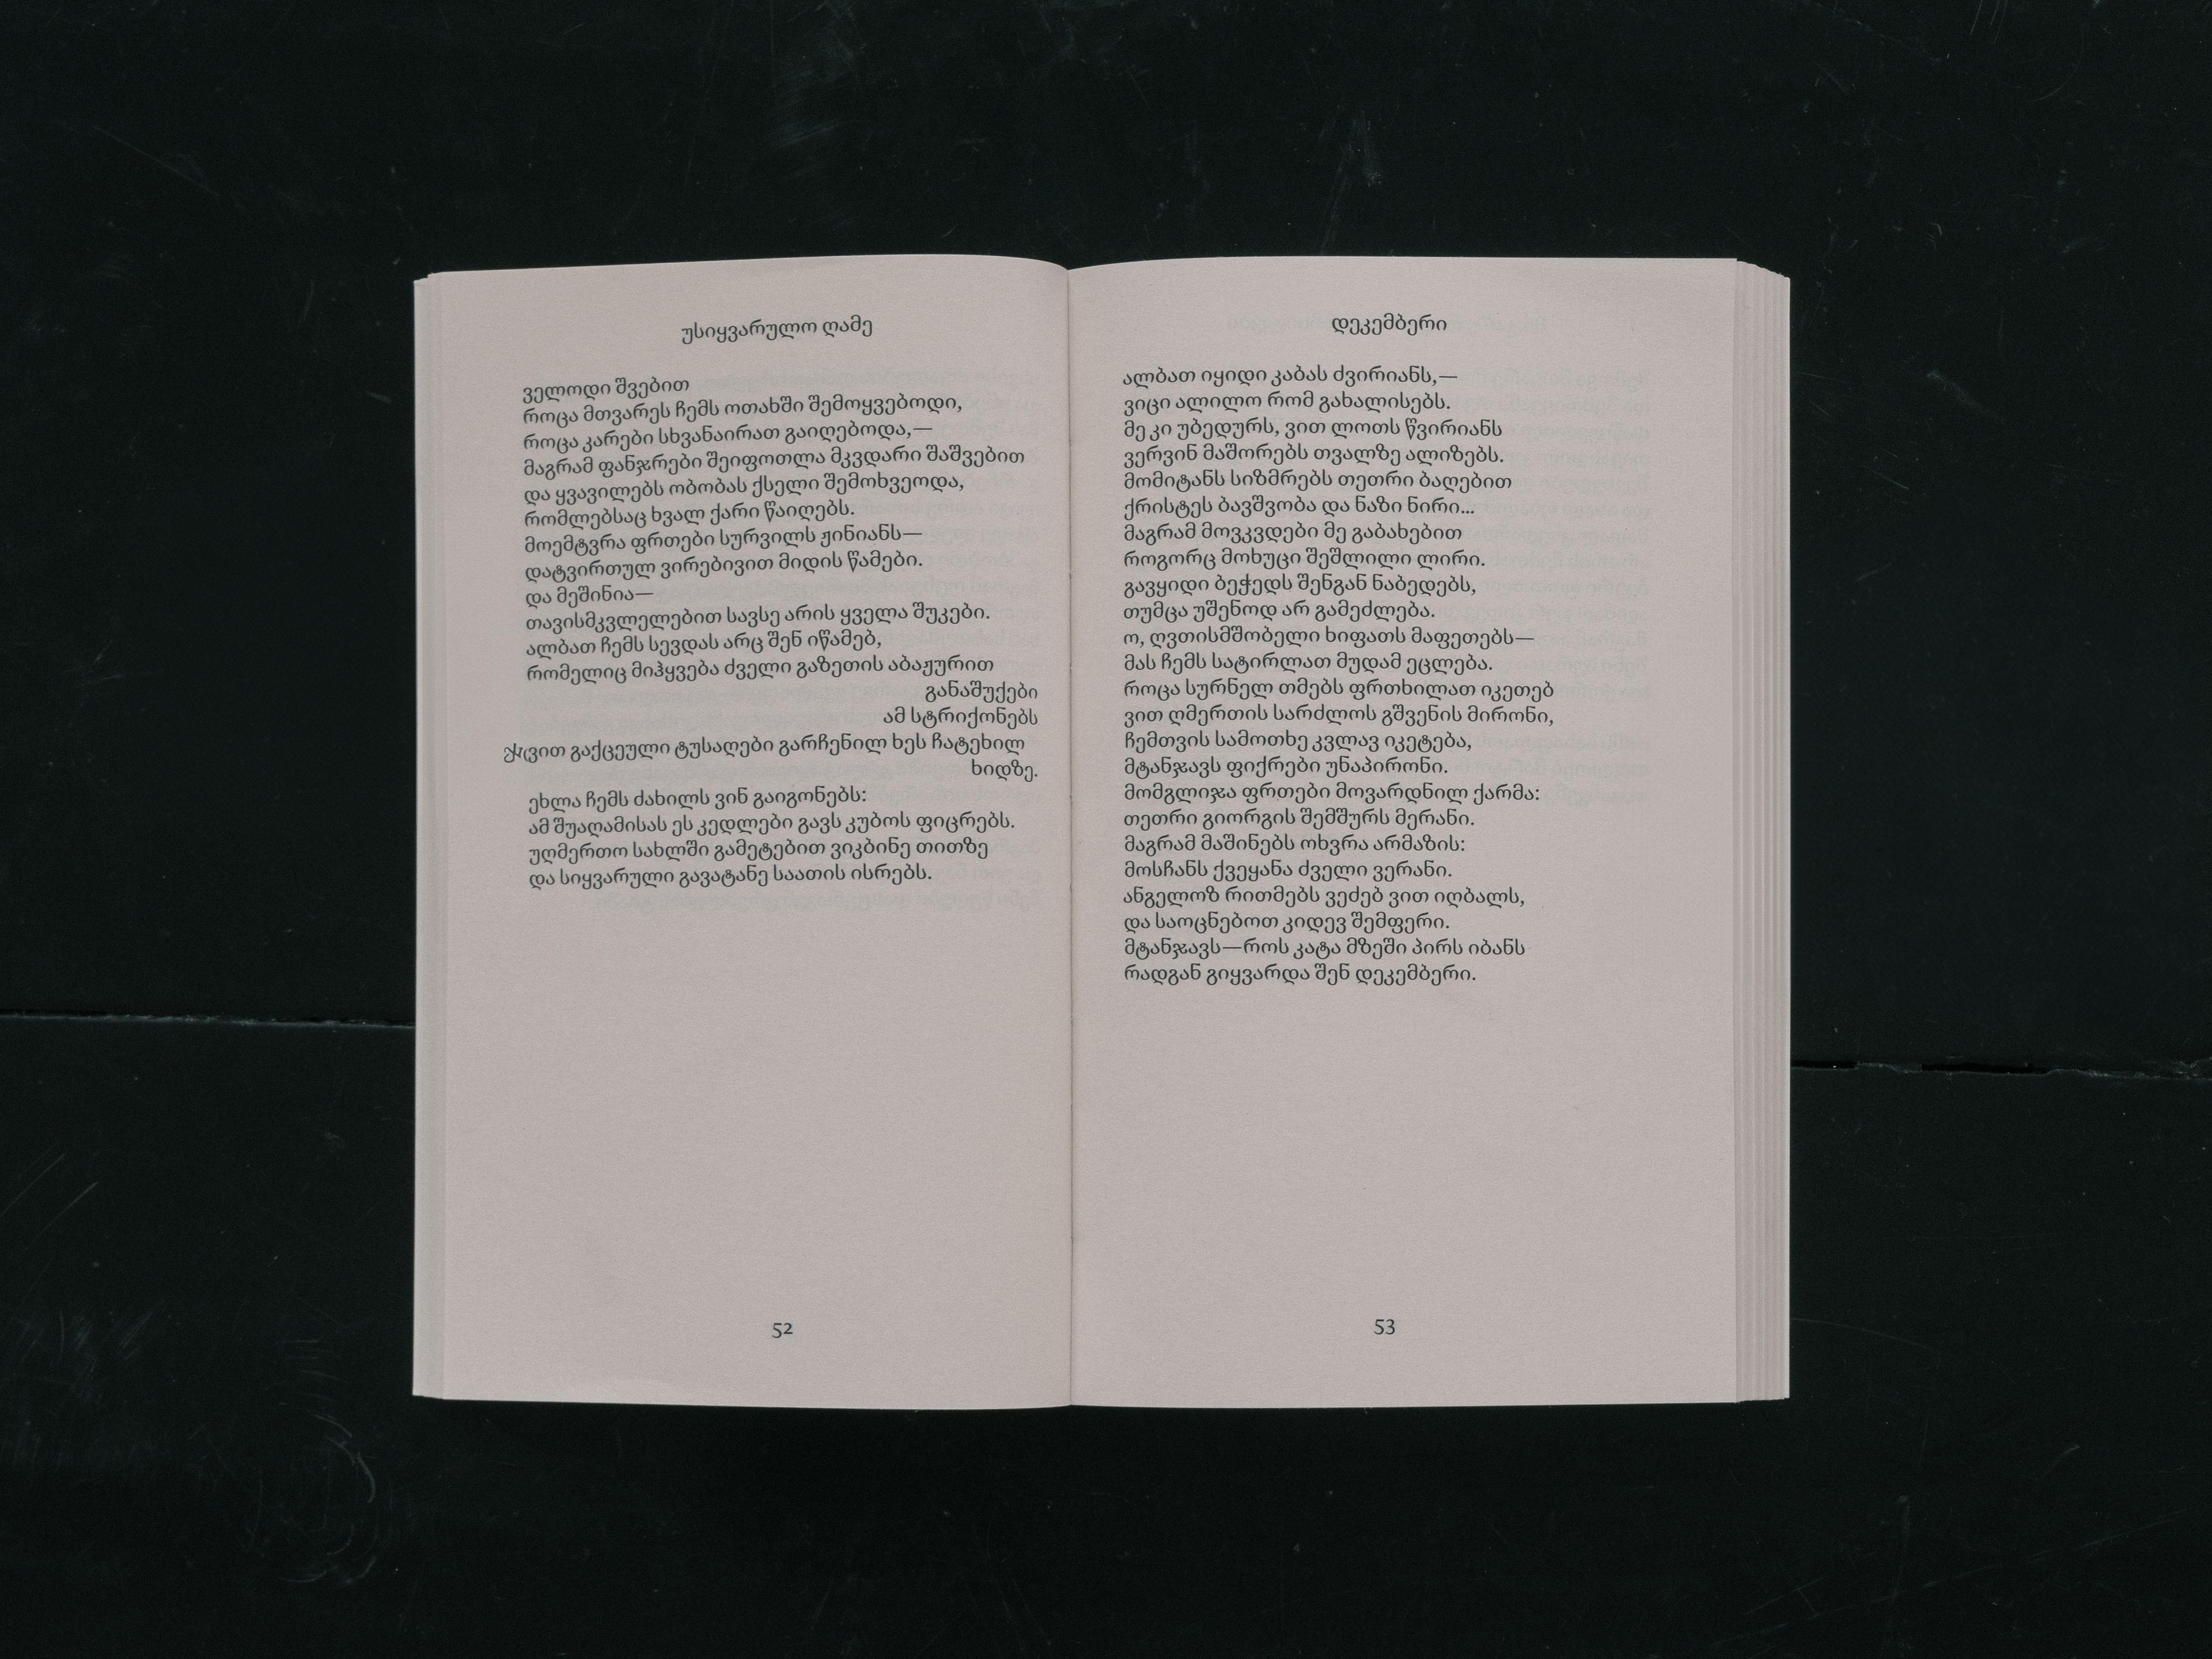 უსიყვარულო ღამე
ველოდი შვებით
როცა მთვარეს ჩემს ოთახში შემოყვებოდი,
როცა კარები სხვანაირათ გაიღებოდა,—
მაგრამ ფანჯრები შეიფოთლა მკვდარი შაშვებით
და ყვავილებს ობობას ქსელი შემოხვეოდა,
რომლებსაც ხვალ ქარი წაიღებს.
მოემტვრა ფრთები სურვილს ჟინიანს—
დატვირთულ ვირებივით მიდის წამები.
და მეშინია—
თავისმკვლელებით სავსე არის ყველა შუკები.
ალბათ ჩემს სევდას არც შენ იწამებ,
რომელიც მიჰყვება ძველი გაზეთის აბაჟურით
განაშუქები
ამ სტრიქონებს
ვით გაქცეული ტუსაღები გარჩენილ ხეს ჩატეხილ
ხიდზე.
ეხლა ჩემს ძახილს ვინ გაიგონებს:
ამ შუაღამისას ეს კედლები გავს კუბოს ფიცრებს.
უღმერთო სახლში გამეტებით ვიკბინე თითზე
და სიყვარული გავატანე საათის ისრებს.
52
დეკემბერი
ალბათ იყიდი კაბას ძვირიანს,—
ვიცი ალილო რომ გახალისებს.
მე კი უბედურს, ვით ლოთს წვირიანს
ვერვინ მაშორებს თვალზე ალიზებს.
მომიტანს სიზმრებს თეთრი ბაღებით
ქრისტეს ბავშვობა და ნაზი ნირი...
მაგრამ მოვკვდები მე გაბახებით
როგორც მოხუცი შეშლილი ლირი.
გავყიდი ბეჭედს შენგან ნაბედებს,
თუმცა უშენოდ არ გამეძლება.
ო, ღვთისმშობელი ხიფათს მაფეთებს—
მას ჩემს სატირლათ მუდამ ეცლება.
როცა სურნელ თმებს ფრთხილათ იკეთებ
ვით ღმერთის სარძლოს გშვენის მირონი,
ჩემთვის სამოთხე კვლავ იკეტება,
მტანჯავს ფიქრები უნაპირონი.
მომგლიჯა ფრთები მოვარდნილ ქარმა:
თეთრი გიორგის შემშურს მერანი.
მაგრამ მაშინებს ოხვრა არმაზის:
მოსჩანს ქვეყანა ძველი ვერანი.
ანგელოზ რითმებს ვეძებ ვით იღბალს,
და საოცნებოთ კიდევ შემფერი.
მტანჯავს—როს კატა მზეში პირს იბანს
რადგან გიყვარდა შენ დეკემბერი.
53